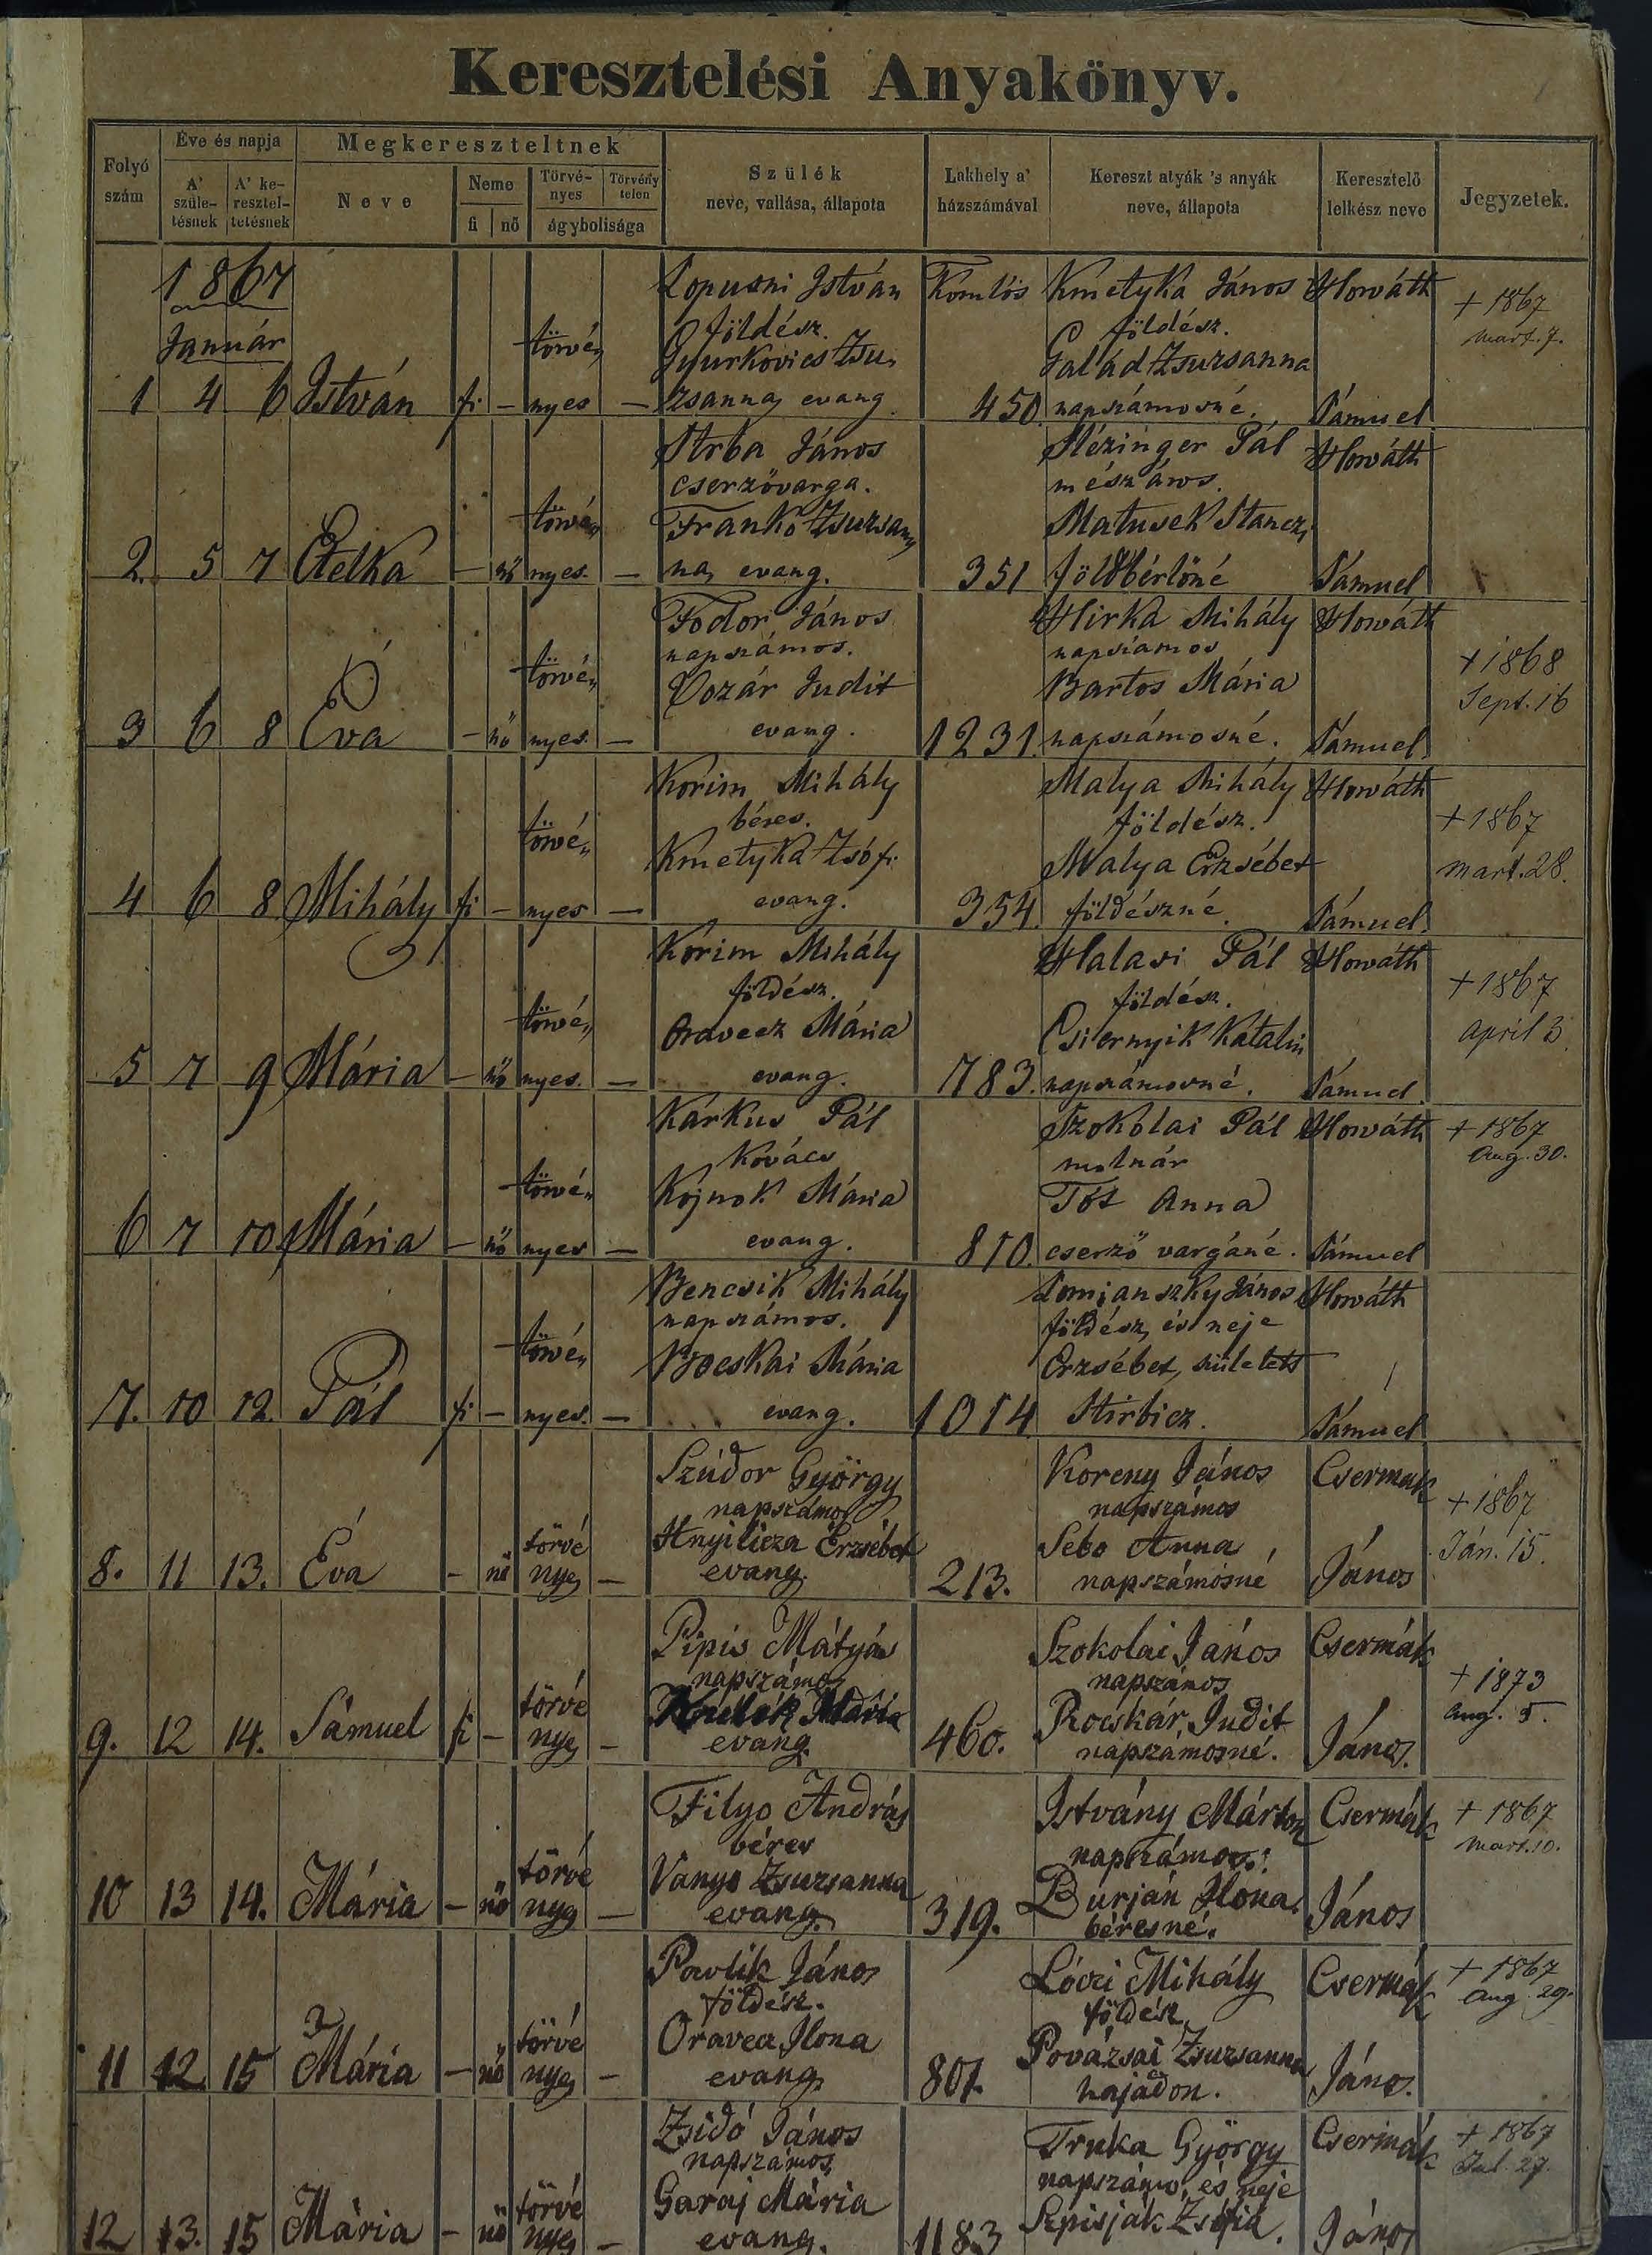 Keresztelési Anyakönyv.
Folyó szám
Éve és napja
A' születésnek
A' kereszteltetésnek
Megkereszteltnek
Neve
Neme
fi
nő
Törvényes
Törvény telen
ágybolisága
Szülék
neve, vallása, állapota
Lakhely a'
házszámával
Kereszt atyák 's anyák
neve, állapota
Keresztelő
lelkész neve
Jegyzetek.
1867
Január
Komlós
Kmetyka János
Horváth
+ 1867
földész.
földész.
mart. 7.
törvé„
Gyurkovics Zsu„
Galád Zsuzsanna
1 4 6 István fi – nyes – zsanna, evang. 450. napszámosné. Sámuel
Strba János
Mézinger Pál
Horváth
cserzővarga.
mészáros.
törvé„
Franko Zsuzsan„
Matusek
2. 5 7 Etelka – nő nyes. – na, evang. 351 földbérlőné Sámuel
Fodor János
Hirka Mihály
Horváth
napszámos.
napszámos
+ 1868
törvé„
Vozár Judit
Bartos Mária
Sept. 16
3 6 8 Éva – nő nyes. – evang. 1231. napszámosné. Sámuel.
Korim Mihály
Malya Mihály
Horváth
béres.
földész.
+ 1867
törvé„
Kmetyka Zsófi
Malya Erzsébet
mart. 28.
4 6 8 Mihály fi – nyes – evang. 354. földészné. Sámuel.
Korim Mihály
Halasi Pál
Horváth
földész.
földész.
+ 1867
törvé„
Oravecz Mária
Csiernyik Katalin
april 3.
5 7 9 Mária – nő nyes. – evang. 783. napszámosné. Sámuel.
Karkus Pál
Szokolai Pál
Horváth
+ 1867
Kovács
molnár
Aug. 30.
törvé„
Kojnok Mária
Tót Anna
6 7 10 Mária – nő nyes – evang. 810. cserző vargáné. Sámuel
Bencsik Mihály
Horváth
napszámos.
földész, és neje
törvé„
Bocskai Mária
Erzsébet, született
7. 10 12. Pál fi – nyes. – evang. 1014 Stirbicz. Sámuel
Szúdor György
Koreny János
Csermak
napszámos
napszámos
+ 1867
törvé
Hnyilicza Erzsébet
Sebo Anna
Ján. 15.
8. 11 13. Éva – nő nyes – evang. 213. napszámosné János
Pipis Mátyás
Szokolai János
Csermák
napszámos
napszámos
+ 1873
törvé
Mária
Rocskár Judit
aug. 5.
9. 12 14. Sámuel fi – nyes – evang. 460. napszámosné. János.
Filyo András
Istvány Márton
Csermák
+ 1867
béres
napszámos.
mart. 10.
törvé
Vanyo Zsuzsanna
Burján Ilona
10 13 14. Mária – nő nyes – evang. 319. béresné. János
Pavlik János
Lóczi Mihály
Csermák
+ 1867
földész.
földész
aug. 29.
törvé
Oravea Ilona
Povázsai Zsuzsanna
11 12 15 Mária – nő nyes – evang. 801. hajadon. János.
Zsidó János
Truka György
Csermák
+ 1867
napszámos
napszámos és neje
Jul. 27.
törvé
Garaj Mária
Szpisják Zsófia.
12 13. 15 Mária – nő nyes – evang. 1183 János